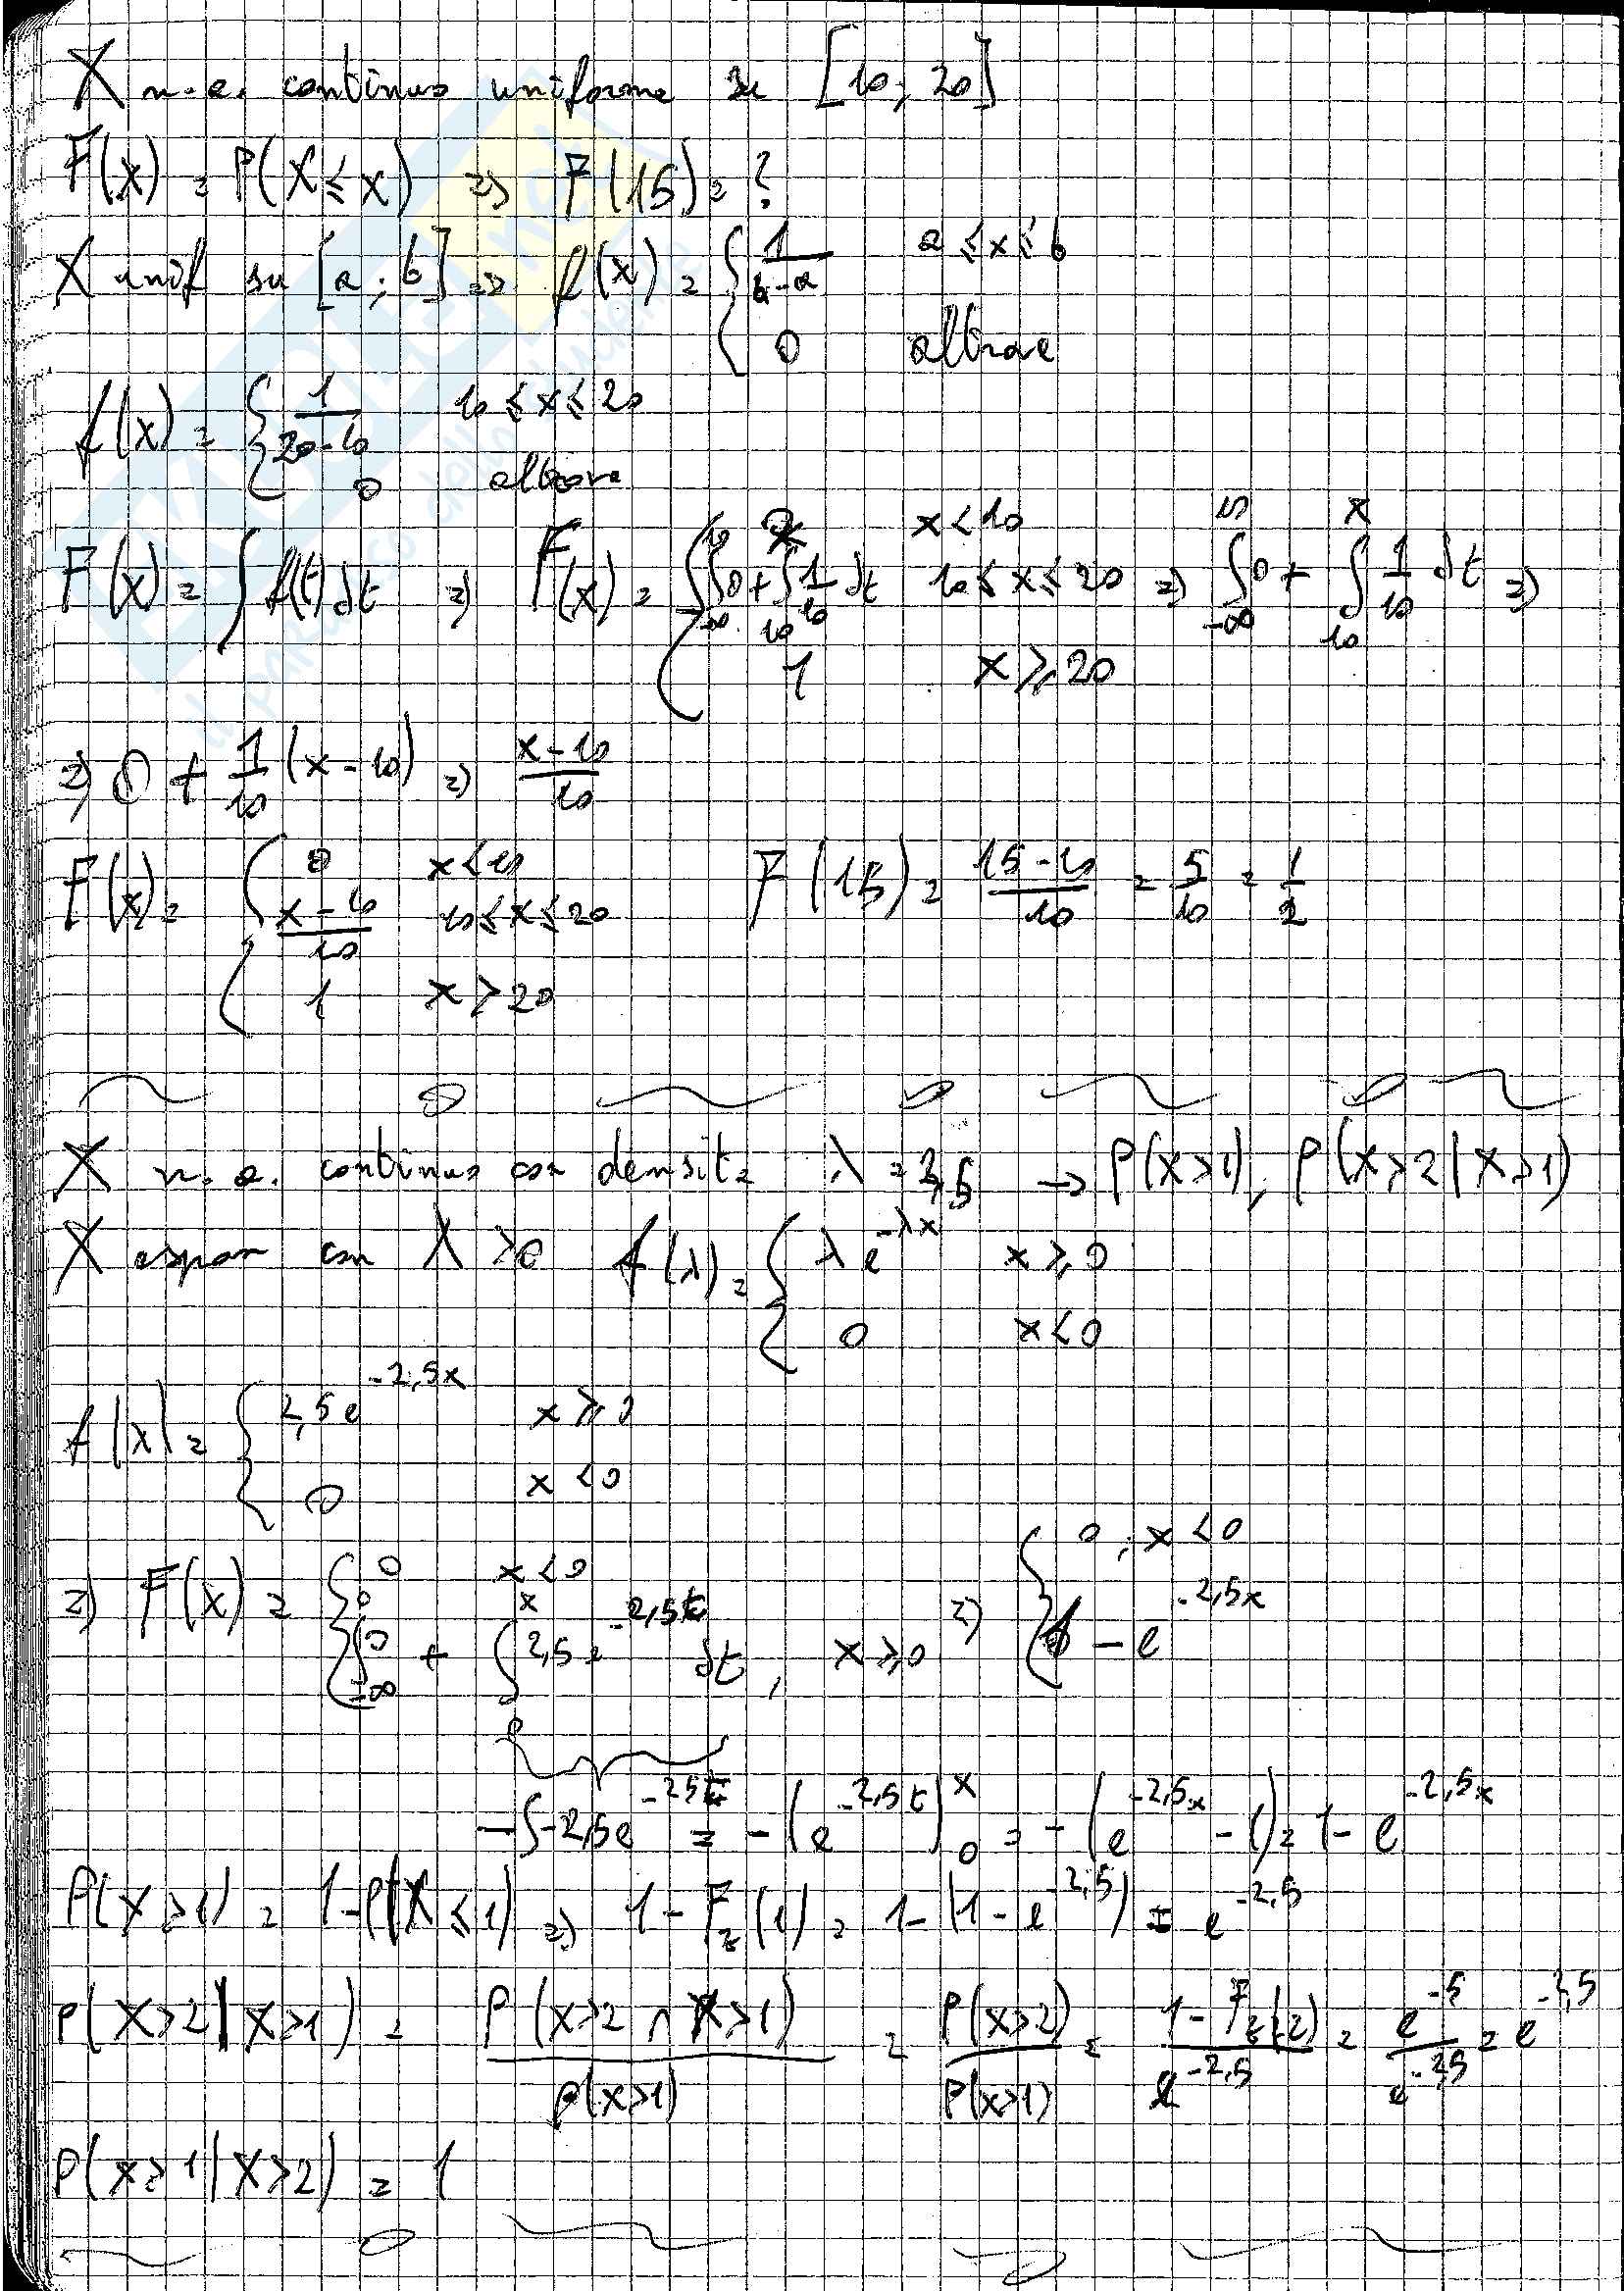 X n.a. continua uniforme su [10; 20]
F(x) = P(X ≤ x) => F(15) = ?
X unif su [a; b] => f(x) = { 1/(b-a) a ≤ x ≤ b
0 altrove
f(x) = { 1/(20-10) 10 ≤ x ≤ 20
0 altrove
F(x) = ∫ f(t) dt => F(x) = { x < 10
∫_{-∞}^{10} 0 + ∫_{10}^{x} 1/10 dt 10 ≤ x ≤ 20 => ∫_{-∞}^{10} 0 + ∫_{10}^{x} 1/10 dt =>
1 x ≥ 20
=> 0 + 1/10 (x - 10) => (x - 10)/10
F(x) = { 0 x < 10
(x - 10)/10 10 ≤ x ≤ 20 F(15) = (15 - 10)/10 = 5/10 = 1/2
1 x > 20
X n.a. continua con densità λ = 2,5 → P(X>1); P(X>2|X>1)
X espon con λ > 0 f(λ) = { λ e^{-λx} x ≥ 0
0 x < 0
f(x) = { 2,5 e^{-2,5x} x ≥ 0
0 x < 0
=> F(x) = { 0 x < 0
∫_{-∞}^{0} 0 + ∫_{0}^{x} 2,5 e^{-2,5t} dt, x ≥ 0 => { 0, x < 0
1 - e^{-2,5x}
-∫ -2,5 e^{-2,5t} = -(e^{-2,5t})_0^x = -(e^{-2,5x} - 1) = 1 - e^{-2,5x}
P(X>1) = 1 - P(X ≤ 1) => 1 - F_z(1) = 1 - (1 - e^{-2,5}) = e^{-2,5}
P(X>2|X>1) = P(X>2 ∩ X>1)/P(X>1) = P(X>2)/P(X>1) = (1 - F_z(2))/e^{-2,5} = e^{-5}/e^{-2,5} = e^{-2,5}
P(X>1|X>2) = 1